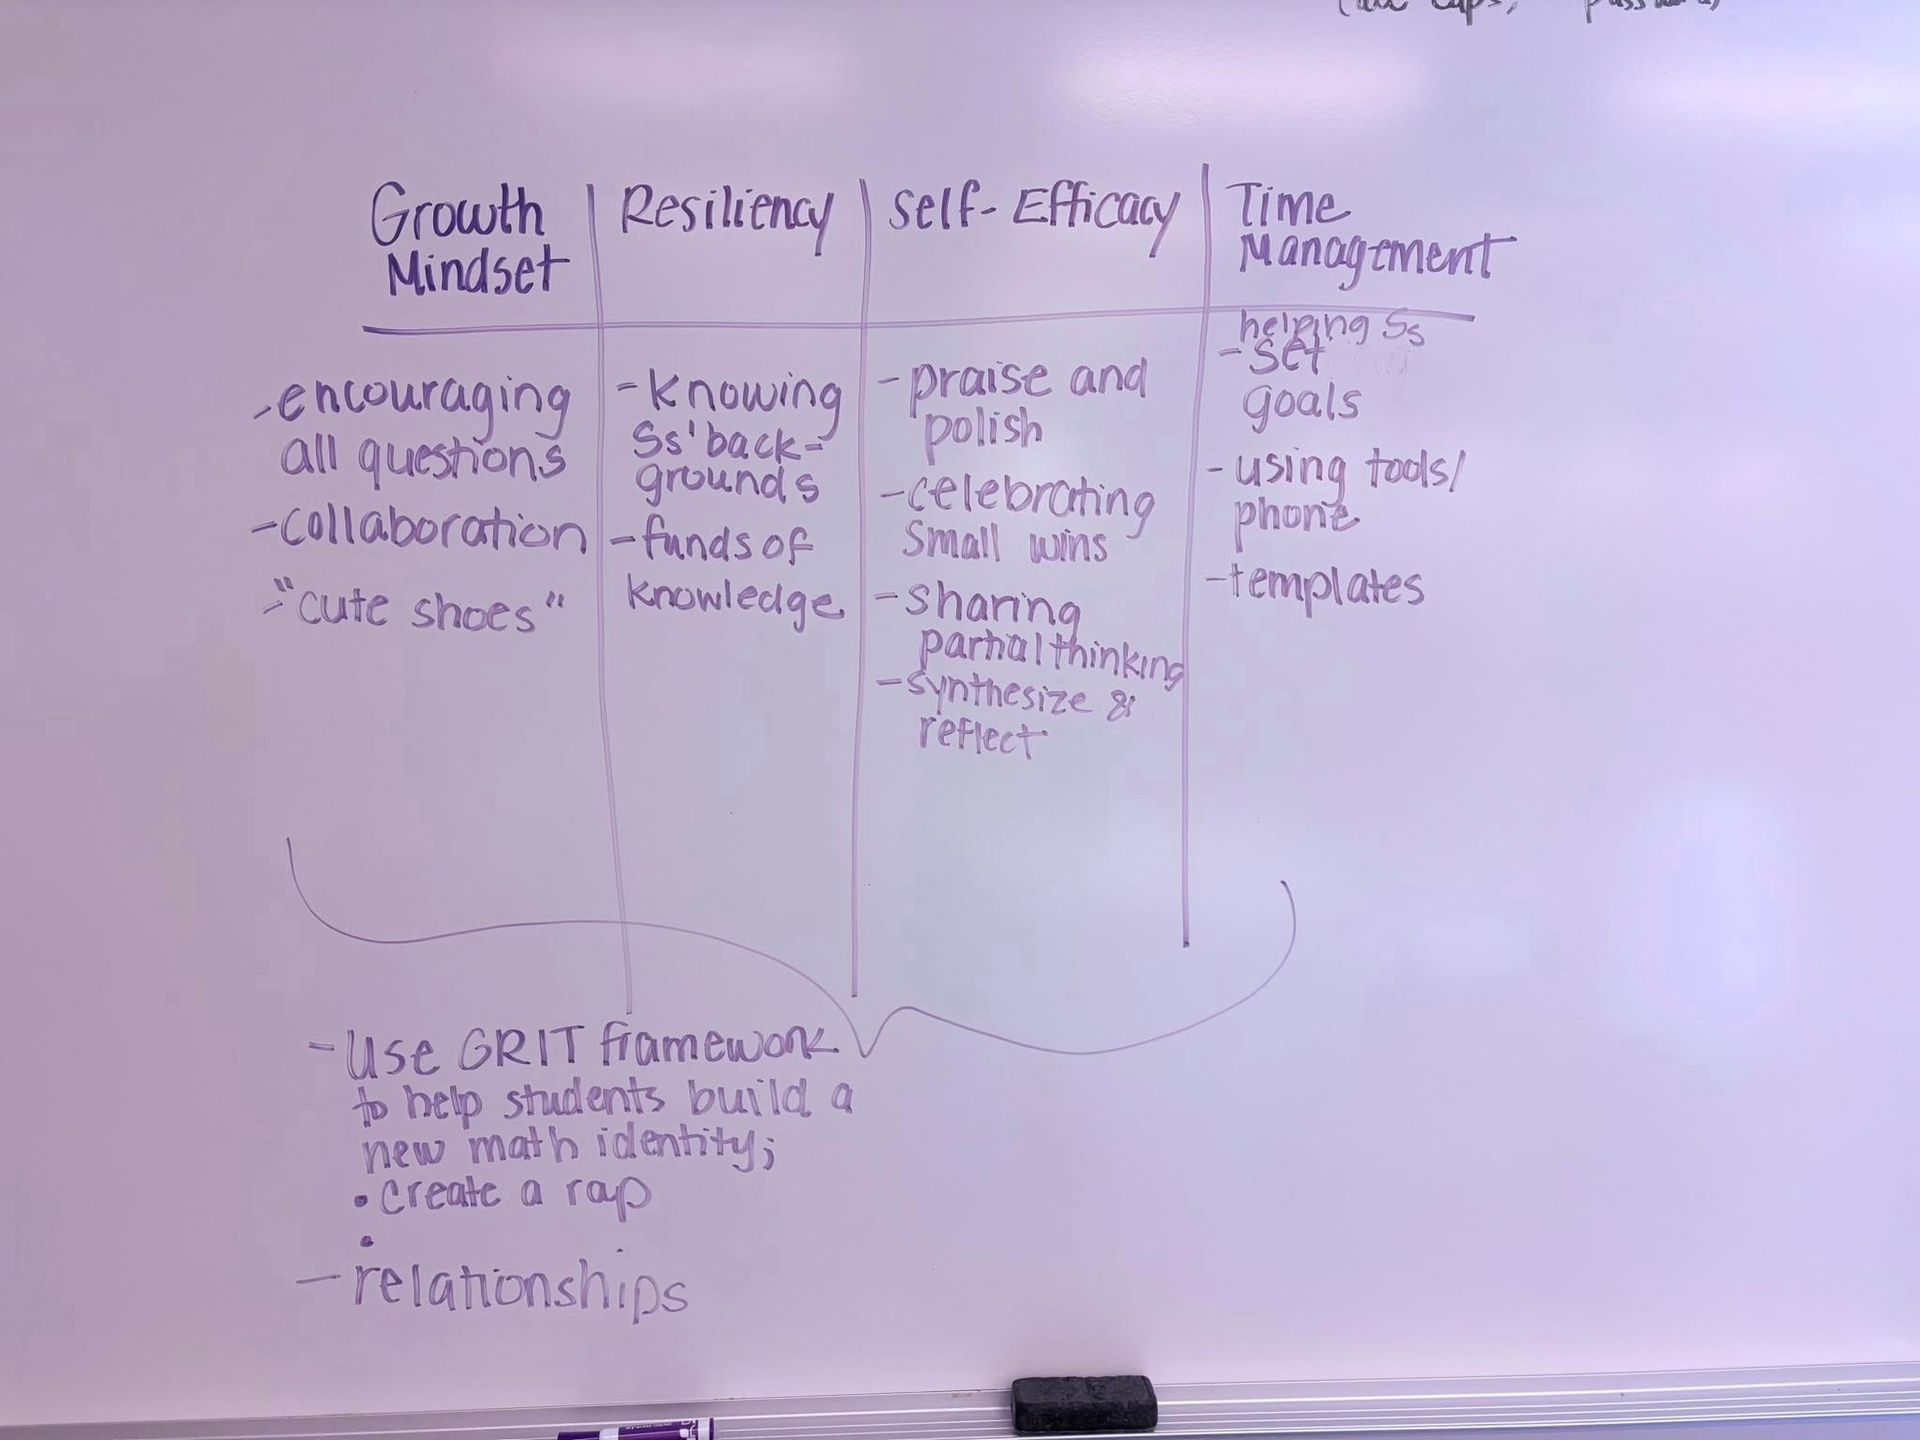 Growth
Mindset
- encouraging
all questions
- collaboration
- "cute shoes"
Resiliency
- Knowing
Ss' back-
grounds
- funds of
knowledge
Self-Efficacy
- praise and
polish
- celebrating
small wins
- sharing
partial thinking
- synthesize &
reflect
Time
Management
helping Ss
- set
goals
- using tools/
phone
- templates
- Use GRIT framework
to help students build a
new math identity;
• create a rap
•
- relationships